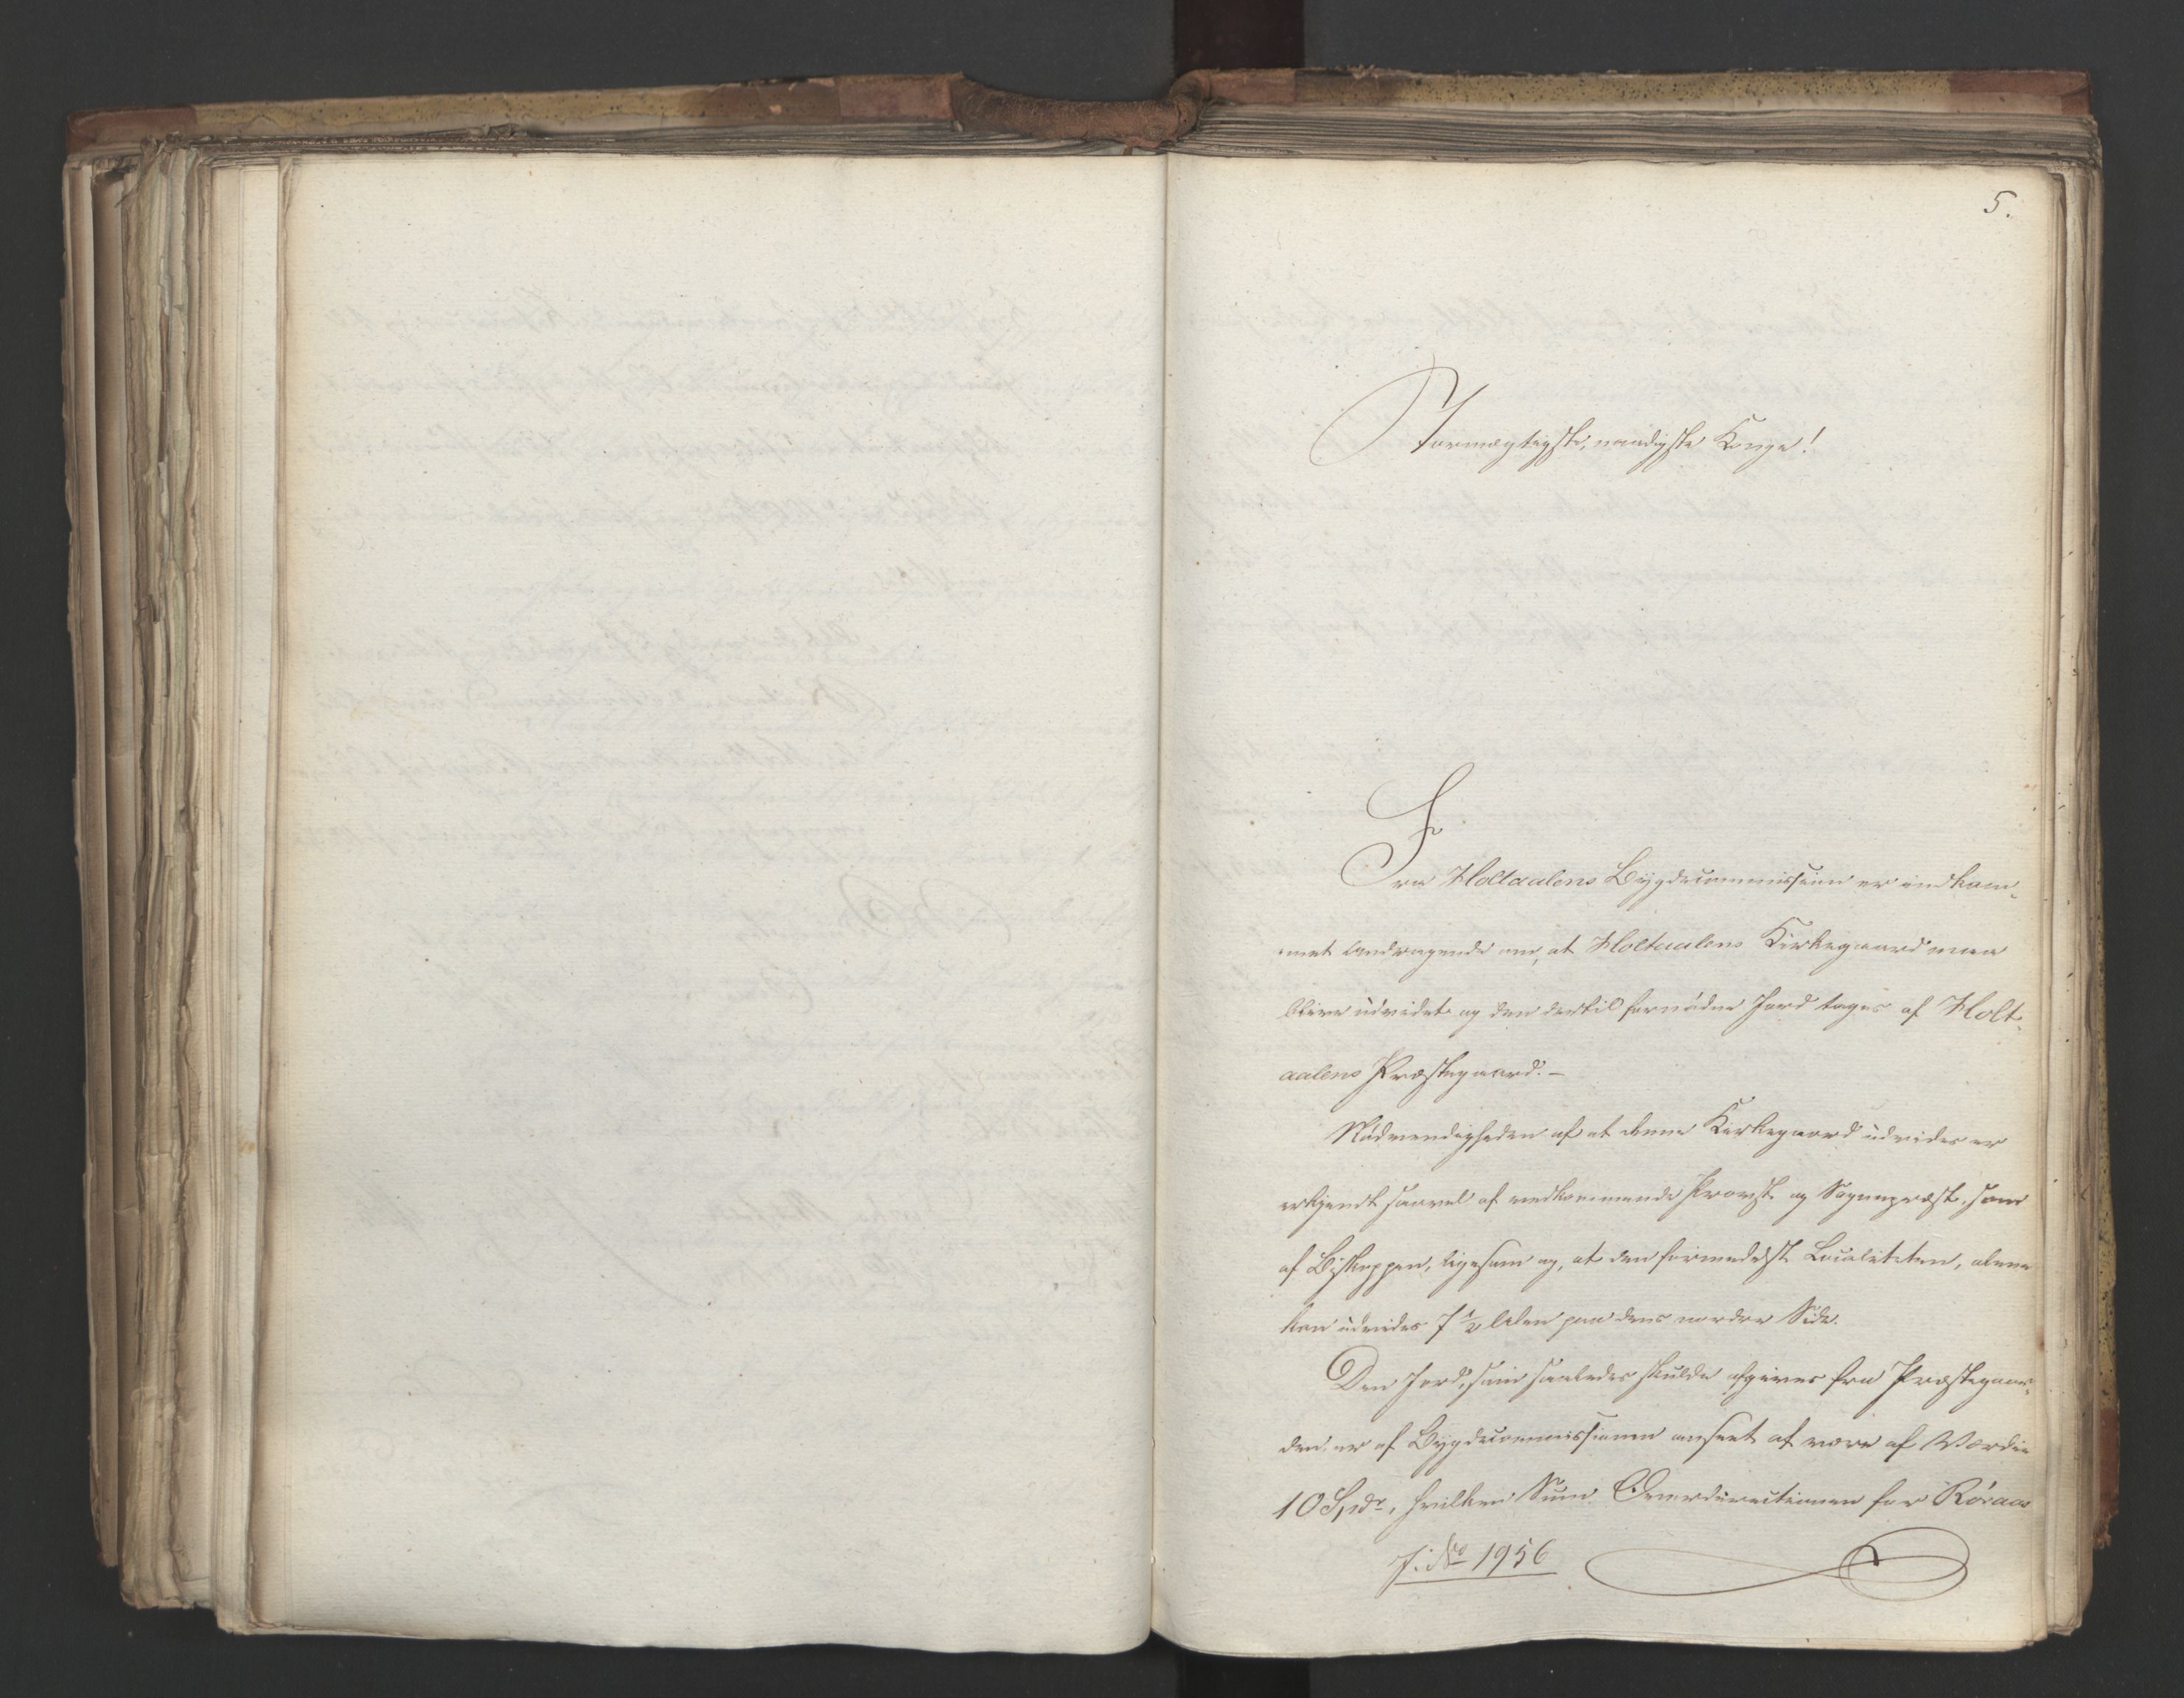 5.
Stormægtigste, naadigste Konge!
Fra Holtaalens Bygdecommission er indkom-
met Andragende om, at Holtaalens Kirkegaard maa
blive udvidet og den dertil fornødne Jord tages af Holt-
aalens Præstegaard. –
Nødvendigheden af at denne Kirkegaard udvides er
erkjendt saavel af vedkommende Provst og Sognepræst, som
af Biskoppen, ligesom og, at den formedelst Localiteten, alene
kan udvides 7 1/2 Alen paa dens nordre Side.
Den Jord, som saaledes skulde afgives fra Præstegaar-
den, er af Bygdecommissionen anseet at være af Værdie
10 Spdr, hvilken Sum Overdirectionen for Røraas
J: No 1956